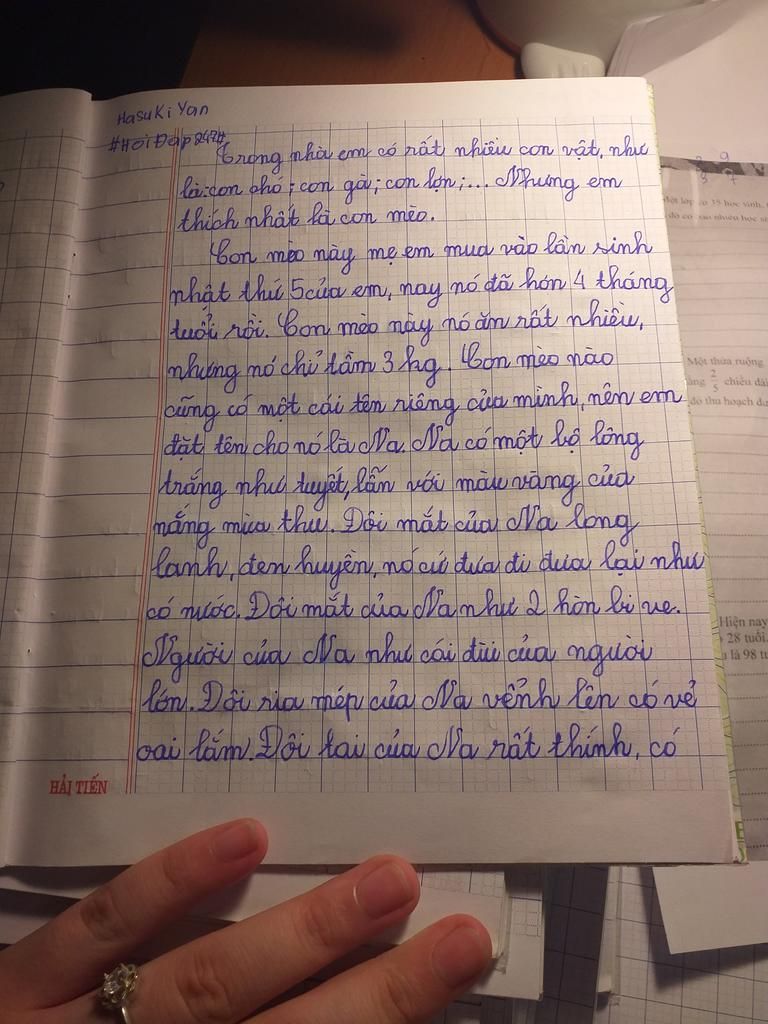 HasuKi Yan
#HoiDap247#
Trong nhà em có rất nhiều con vật, như
là: con chó; con gà; con lợn;... Nhưng em
thích nhất là con mèo.
Con mèo này mẹ em mua vào lần sinh
nhật thứ 5 của em, nay nó đã hơn 4 tháng
tuổi rồi. Con mèo này nó ăn rất nhiều,
nhưng nó chỉ tầm 3 kg. Con mèo nào
cũng có một cái tên riêng của mình, nên em
đặt tên cho nó là Na. Na có một bộ lông
trắng như tuyết, lẫn với màu vàng của
nắng mùa thu. Đôi mắt của Na long
lanh, đen huyền, nó cứ đưa đi đưa lại như
có nước. Đôi mắt của Na như 2 hòn bi ve.
Người của Na như cái đùi của người
lớn. Đôi ria mép của Na vểnh lên có vẻ
oai lắm. Đôi tai của Na rất thính, có
HẢI TIẾN
Một lớp có 35 học sinh,
đó có bao nhiêu học
Một thửa ruộng
2/5 chiều dài
đó thu hoạch
Hiện nay
28 tuổi.
là 98